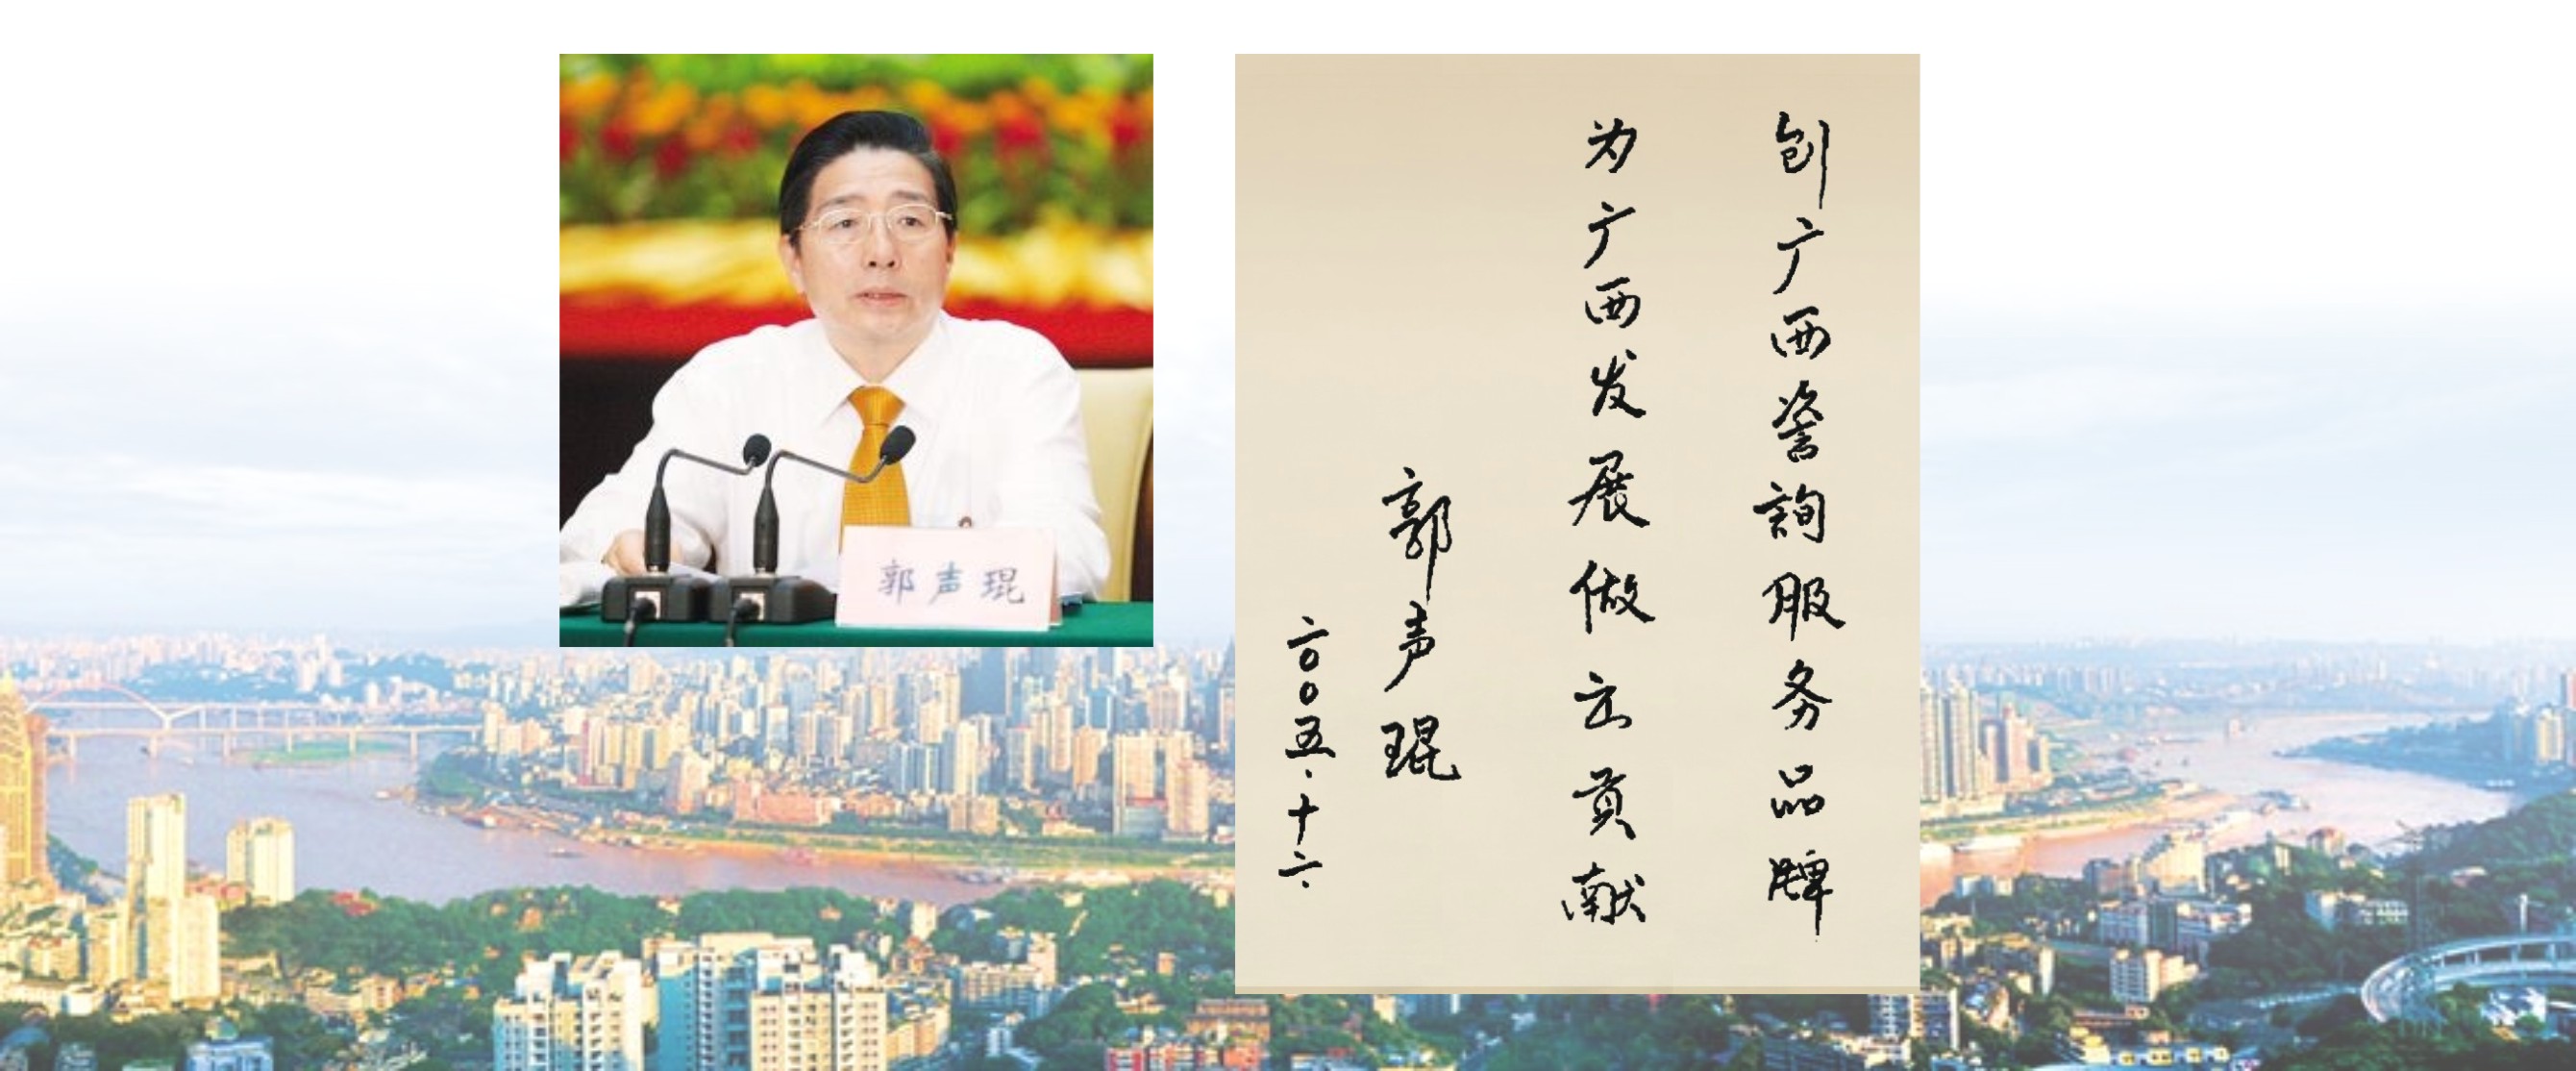 郭声琨
创广西咨詢服务品牌
为广西发展做出贡献
郭声琨
二〇〇五.十二.